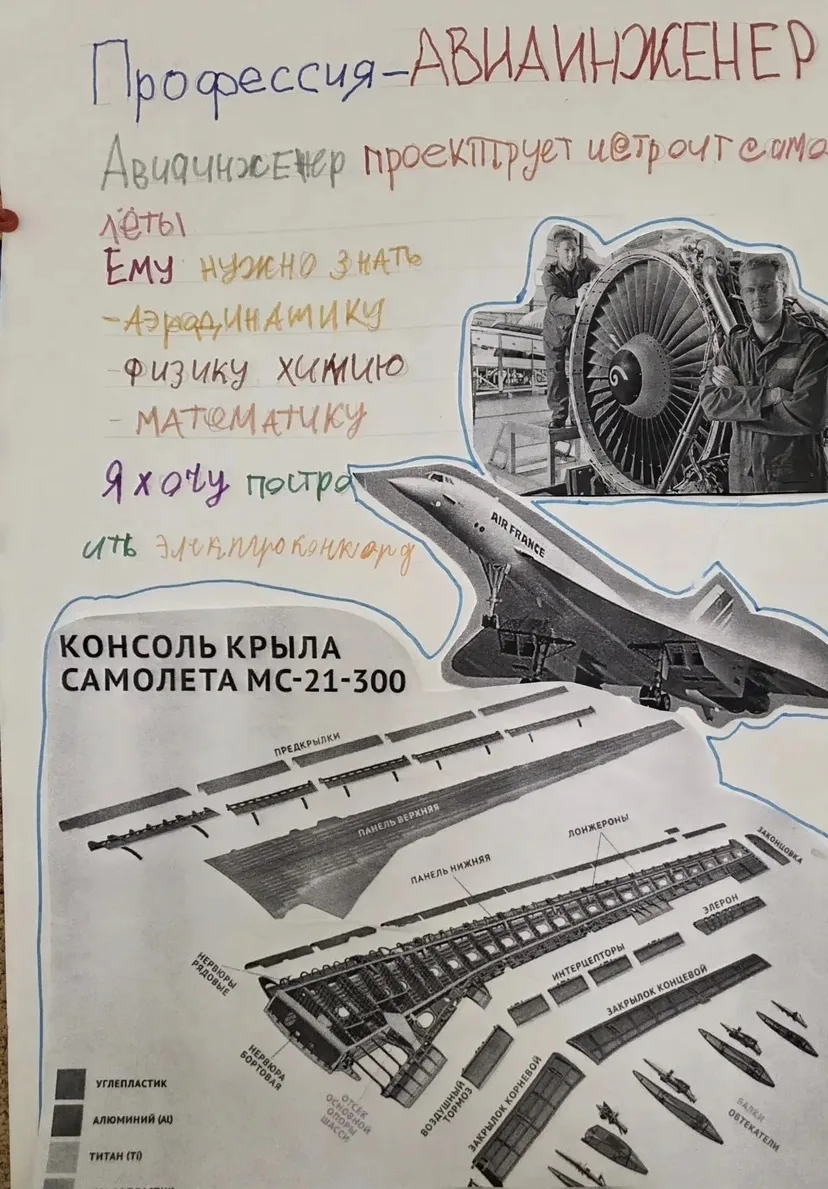 Профессия-АВИАИНЖЕНЕР
Авиаинженер проектрует и строит само
лёты
Ему нужно знать
-Аэродинамику
-Физику химию
- математику
Я хочу постро
ить электроконкорд
AIR FRANCE
КОНСОЛЬ КРЫЛА
САМОЛЕТА МС-21-300
ПРЕДКРЫЛКИ
ПАНЕЛЬ ВЕРХНЯЯ
ПАНЕЛЬ НИЖНЯЯ
ЛОНЖЕРОНЫ
ЗАКОНЦОВКА
ЭЛЕРОН
НЕРВЮРЫ
РЯДОВЫЕ
ИНТЕРЦЕПТОРЫ
ЗАКРЫЛОК КОНЦЕВОЙ
НЕРВЮРА
БОРТОВАЯ
ОТСЕК
ОСНОВНОЙ
ОПОРЫ
ШАССИ
ВОЗДУШНЫЙ
ТОРМОЗ
ЗАКРЫЛОК КОРНЕВОЙ
БАЛКИ
ОБТЕКАТЕЛИ
УГЛЕПЛАСТИК
АЛЮМИНИЙ (Al)
ТИТАН (Ti)